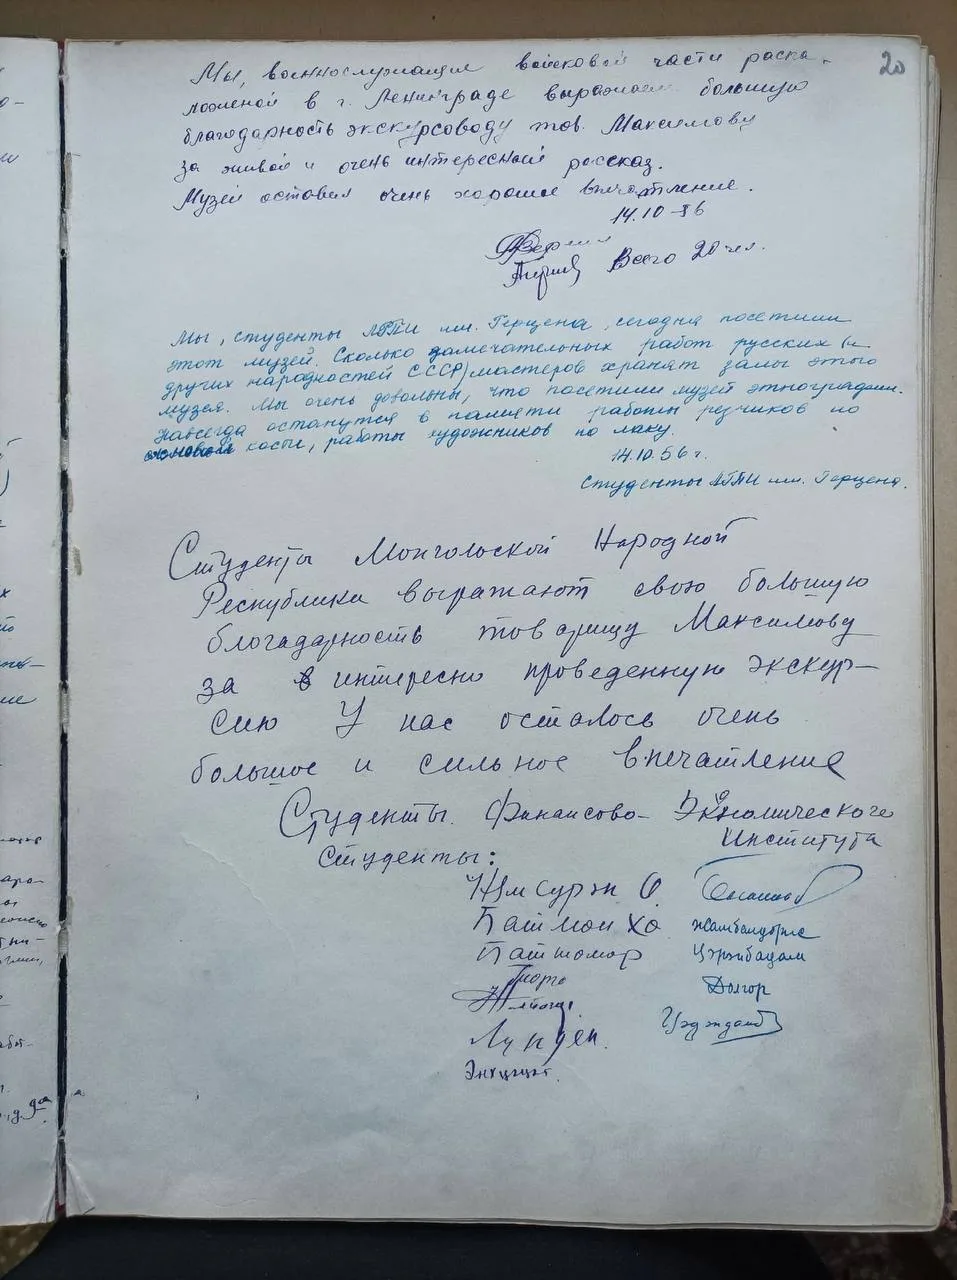 20
Мы, военнослужащие войсковой части распо-
ложеной в г. Ленинграде выражаем большую
благодарность экскурсоводу тов. Максимову
за живой и очень интересный рассказ.
Музей оставил очень хорошее впечатление.
14.10-56
Всего 20 чел.
Мы, студенты ЛГПИ им. Герцена, сегодня посетили
этот музей. Сколько замечательных работ русских (и
других народностей СССР) мастеров хранят залы этого
музея. Мы очень довольны, что посетили музей этнографии.
Навсегда останутся в памяти работы резчиков по
кости, работы художников по лаку.
14.10.56 г.
Студенты ЛГПИ им. Герцена.
Студенты Монгольской Народной
Республики выражают свою большую
благадарность товарищу Максимову
за интересно проведенную экскур-
сию У нас осталось очень
большое и сильное впечатление
Студенты Финансово- Экономического
Института
студенты:
Нямсурэн О.
Батмонхо Жамбалдорж
Баттомор Цэрэнбадам
Долгор
Лунден.